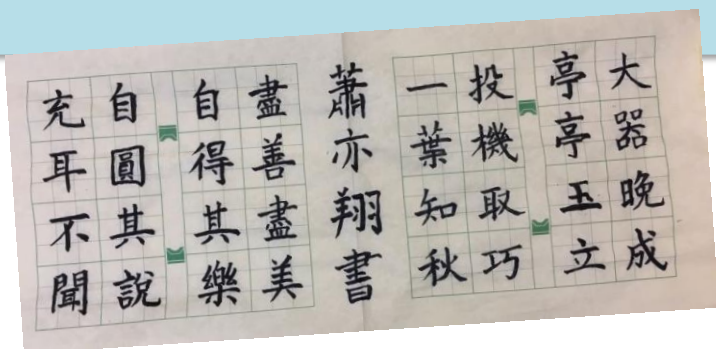 大器晚成
亭亭玉立
投機取巧
一葉知秋
蕭亦翔書
盡善盡美
自得其樂
自圓其說
充耳不聞